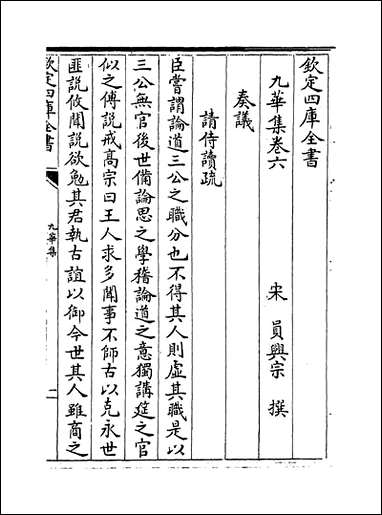 欽定四庫全書
九華集卷六
宋 員興宗 撰
奏議
請侍讀疏
臣嘗謂論道三公之職分也不得其人則虛其職是以
三公無官後世備論思之學稽論道之意獨講筵之官
似之傅說戒高宗曰王人求多聞事不師古以克永世
匪說攸聞說欲勉其君執古誼以御今世其人雖商之
欽定四庫全書
九華集